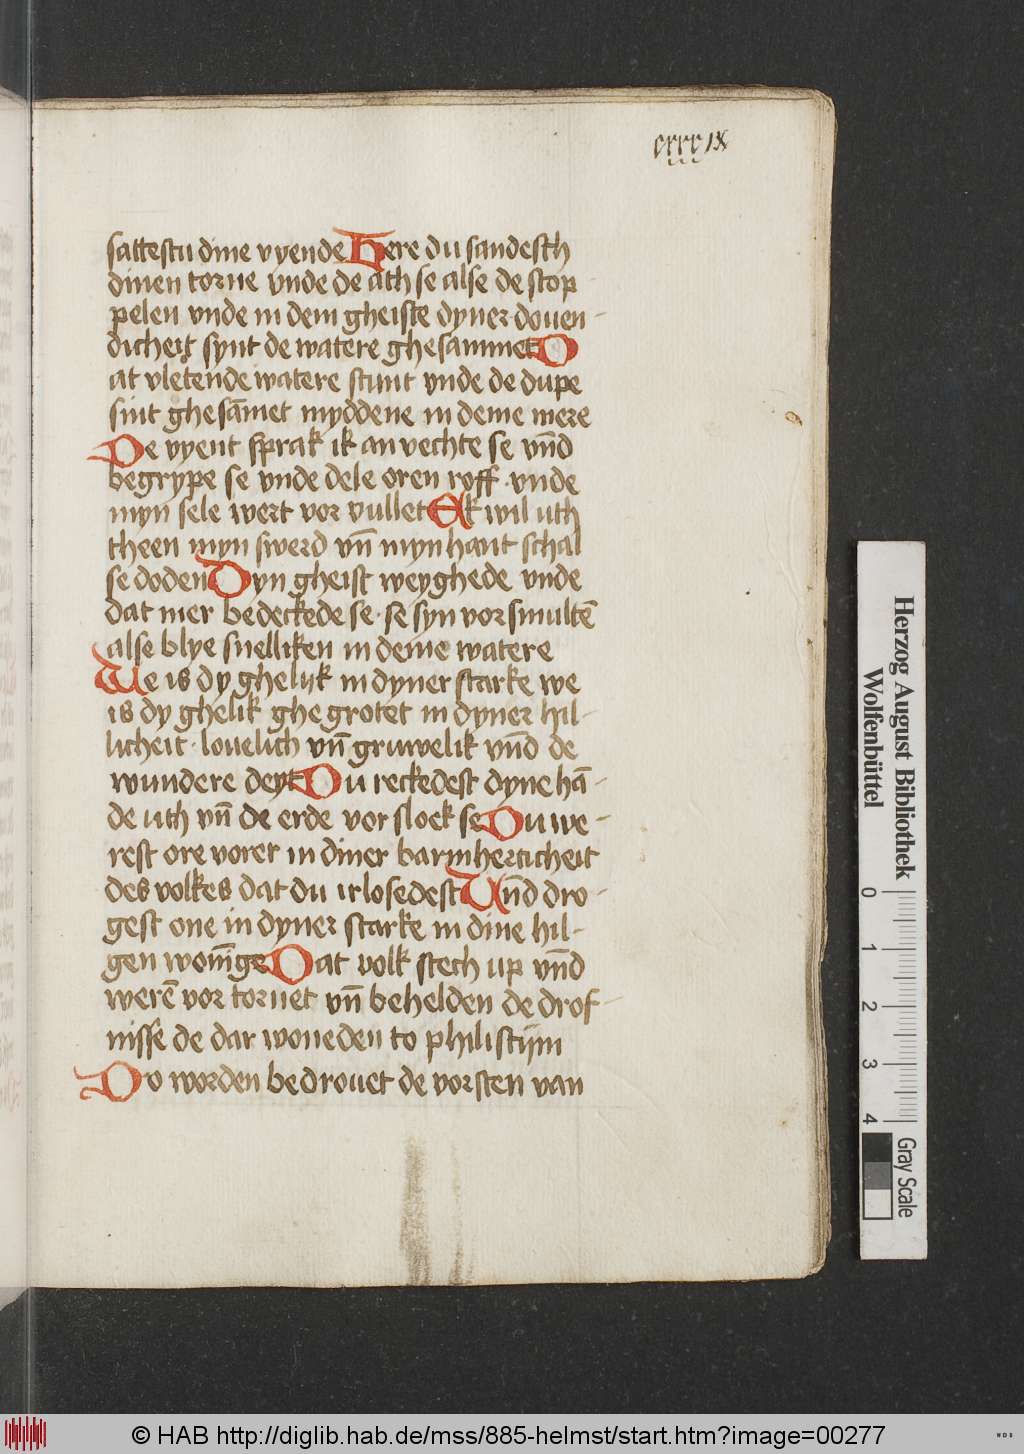 crrr ix
sattestu dine vyende Here du sandesth
dinen torne vnde de ath se alse de stop
pelen vnde in dem gheiste dyner douen-
dicheit synt de watere ghesammet D
at vletende watere stunt vnde de dupe
sint ghesāmet myddene in deme mere
De vyent sprak ik an vechte se vn̄d
begrype se vnde dele oren roff · vnde
myn sele wert vor vullet Ek wil uth
theen myn swerd vn̄ myn hant schal
se doden Dyn gheist weyghede vnde
dat mer bedeckede se · se syn vorsmultē
alse blye snelliken in deme watere
We is dy ghelijk in dyner starke we
is dy ghelik ghe grotet in dyner hil-
licheit · louelich vn̄ gruwelik vn̄d de
wundere deyt Du reckedest dyne hā-
de uth vn̄ de erde vor sloek se Du we-
rest ore vorer in diner barmherticheit
des volkes dat du irlosedest Un̄d dro-
gest one in dyner starke in dine hil-
gen wonīge Dat volk stech up vn̄d
werē vor tornet vn̄ behelden de drof-
nisse de dar woneden to philistijm
Do worden bedrouet de vorsten van
Herzog August Bibliothek
Wolfenbüttel
0 1 2 3 4
Gray Scale
© HAB http://diglib.hab.de/mss/885-helmst/start.htm?image=00277